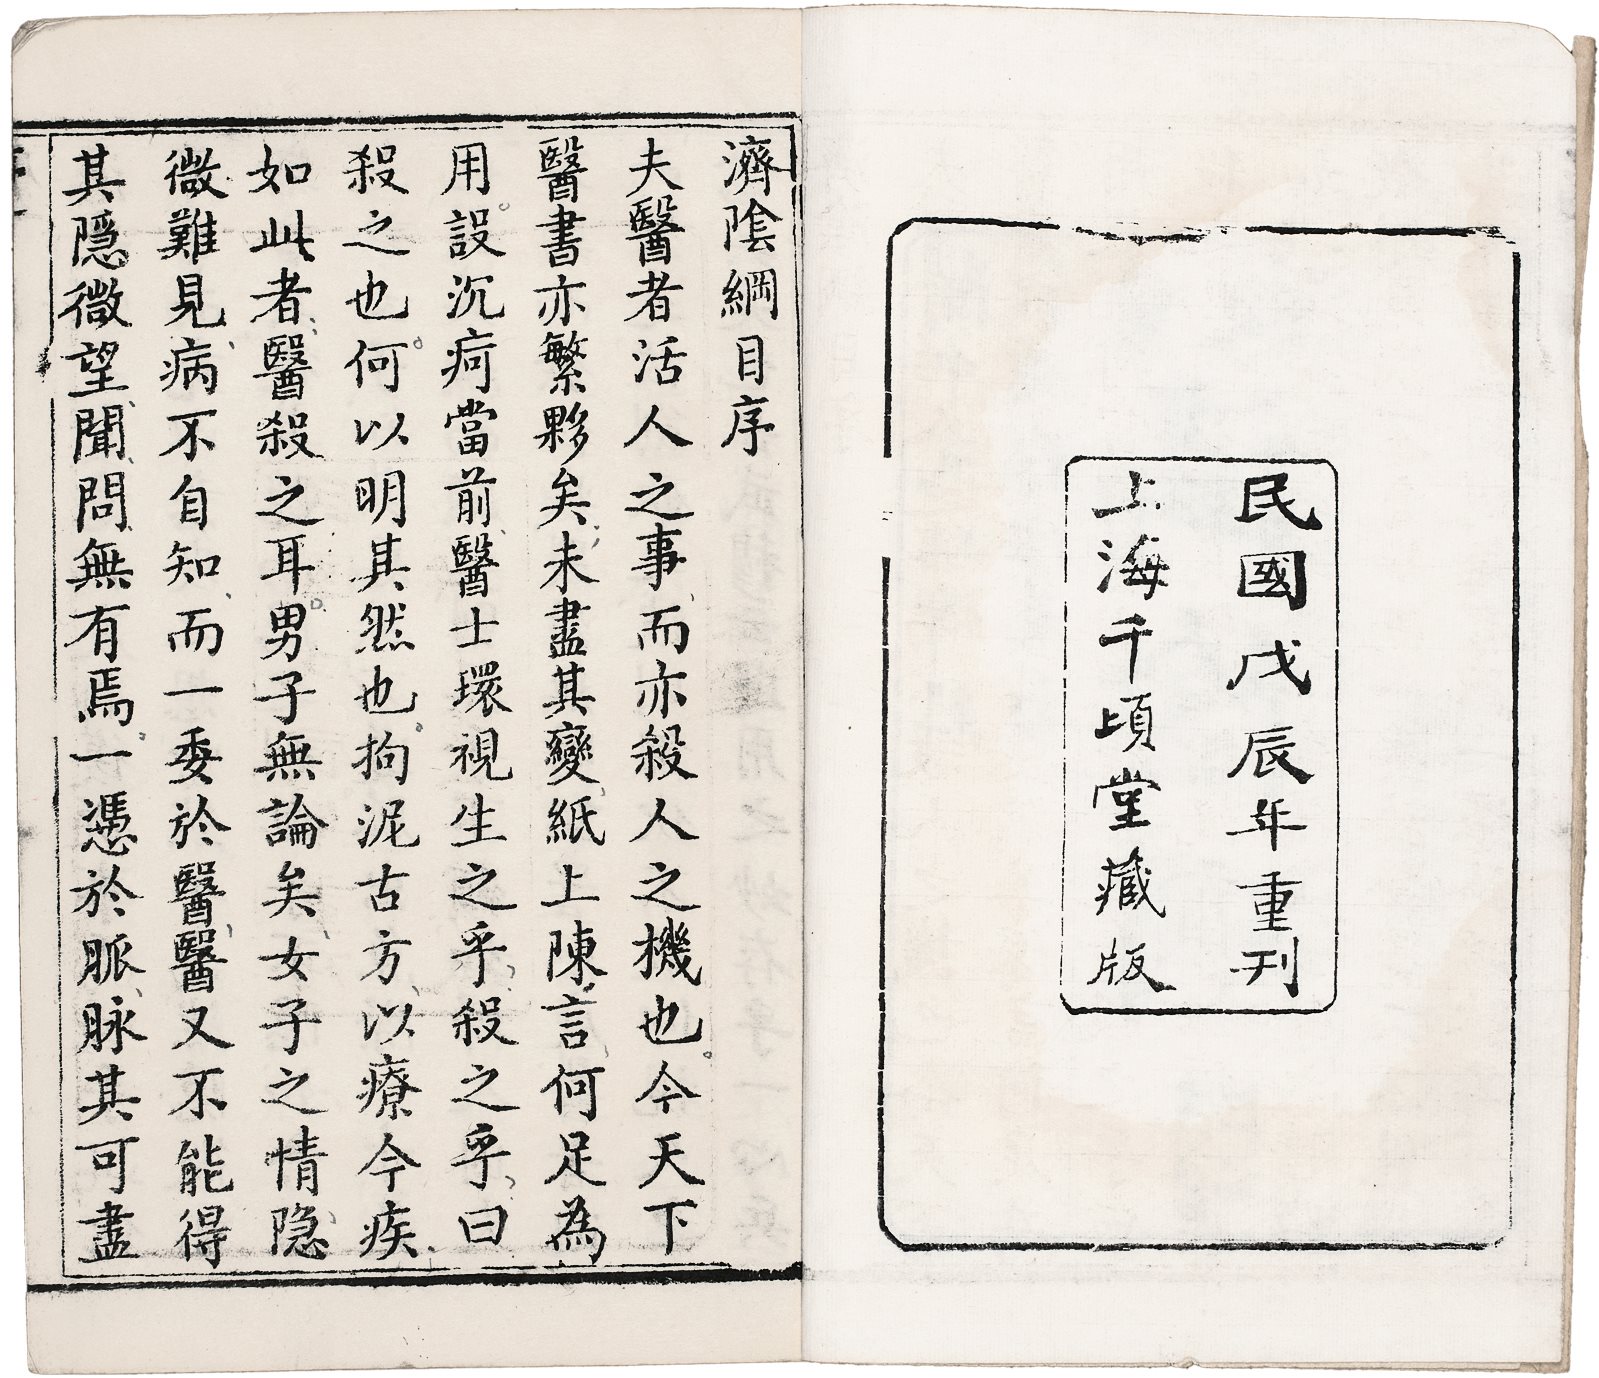 民國戊辰年重刊
上海千頃堂藏版
濟陰綱目序
夫醫者活人之事而亦殺人之機也。今天下
醫書亦繁夥矣、未盡其變、紙上陳言、何足為
用。設沉疴當前、醫士環視、生之乎、殺之乎、曰
殺之也。何以明其然也。拘泥古方、以療今疾、
如此者、醫殺之耳。男子無論矣、女子之情隐
微難見、病不自知、而一委於醫、醫又不能得
其隱微、望聞問、無有焉。一憑於脈、脉其可盡